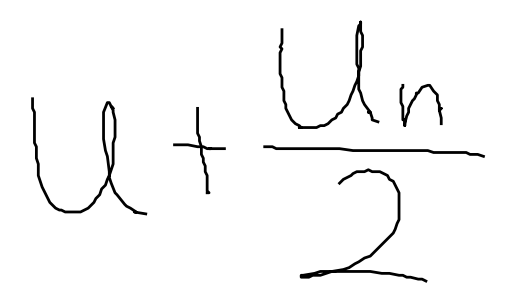 u + \frac{u_n}{2}